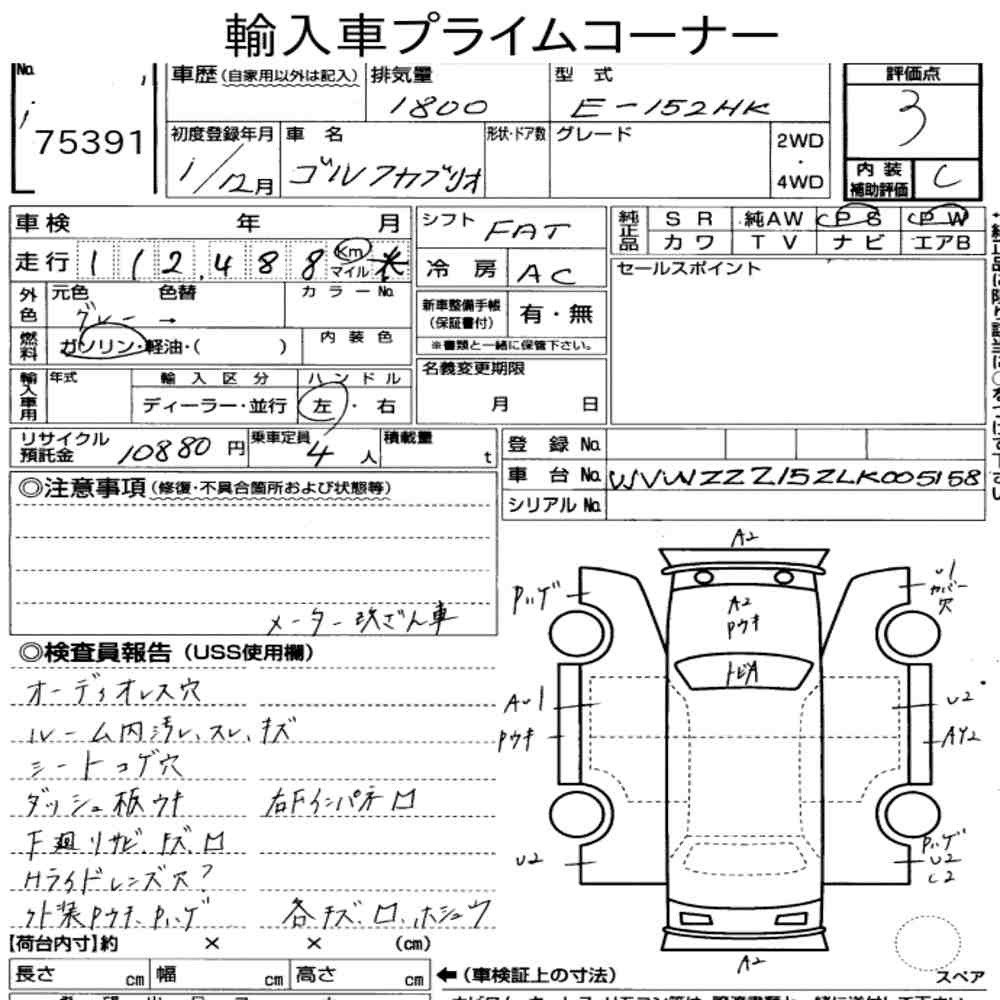 輸入車プライムコーナー
No. 75391
車歴(自家用以外は記入) 排気量 1800 型式 E-152HK
評価点 3
初度登録年月 1/12月 車名 ゴルフカブリオ 形状・ドア数 グレード 2WD・4WD
内装補助評価 C
車検 年 月
走行 112,488 Km マイル
シフト FAT
純正品 SR 純AW PS PW
カワ TV ナビ エアB
冷房 AC
セールスポイント
外色 元色 グレー → 色替 カラーNo.
新車整備手帳(保証書付) 有・無
※書類と一緒に保管下さい。
燃料 ガソリン・軽油・( ) 内装色
名義変更期限 月 日
輸入車用 年式 輸入区分 ディーラー・並行 ハンドル 左・右
リサイクル預託金 10880円 乗車定員 4人 積載量 t
登録No.
車台No. WVWZZZ15ZLK005158
シリアルNo.
◎注意事項(修復・不具合箇所および状態等)
メーター改ざん車
◎検査員報告(USS使用欄)
オーディオレス穴
ルーム内汚レ、スレ、キズ
シートコゲ穴
ダッシュ板ウキ 右Fインパネロ
下廻リサビ、キズ、ロ
Hライドレンズ穴?
外装Pウキ、Pハゲ 各キズ、ロ、ホシュウ
A2
Pハゲ
U1 カバー穴
A2 Pウキ
トビA
AU1
Pウキ
U2
AY2
U2
Pハゲ U2 C2
A2
スペア
【荷台内寸】約 × × (cm)
長さ cm 幅 cm 高さ cm
←(車検証上の寸法)